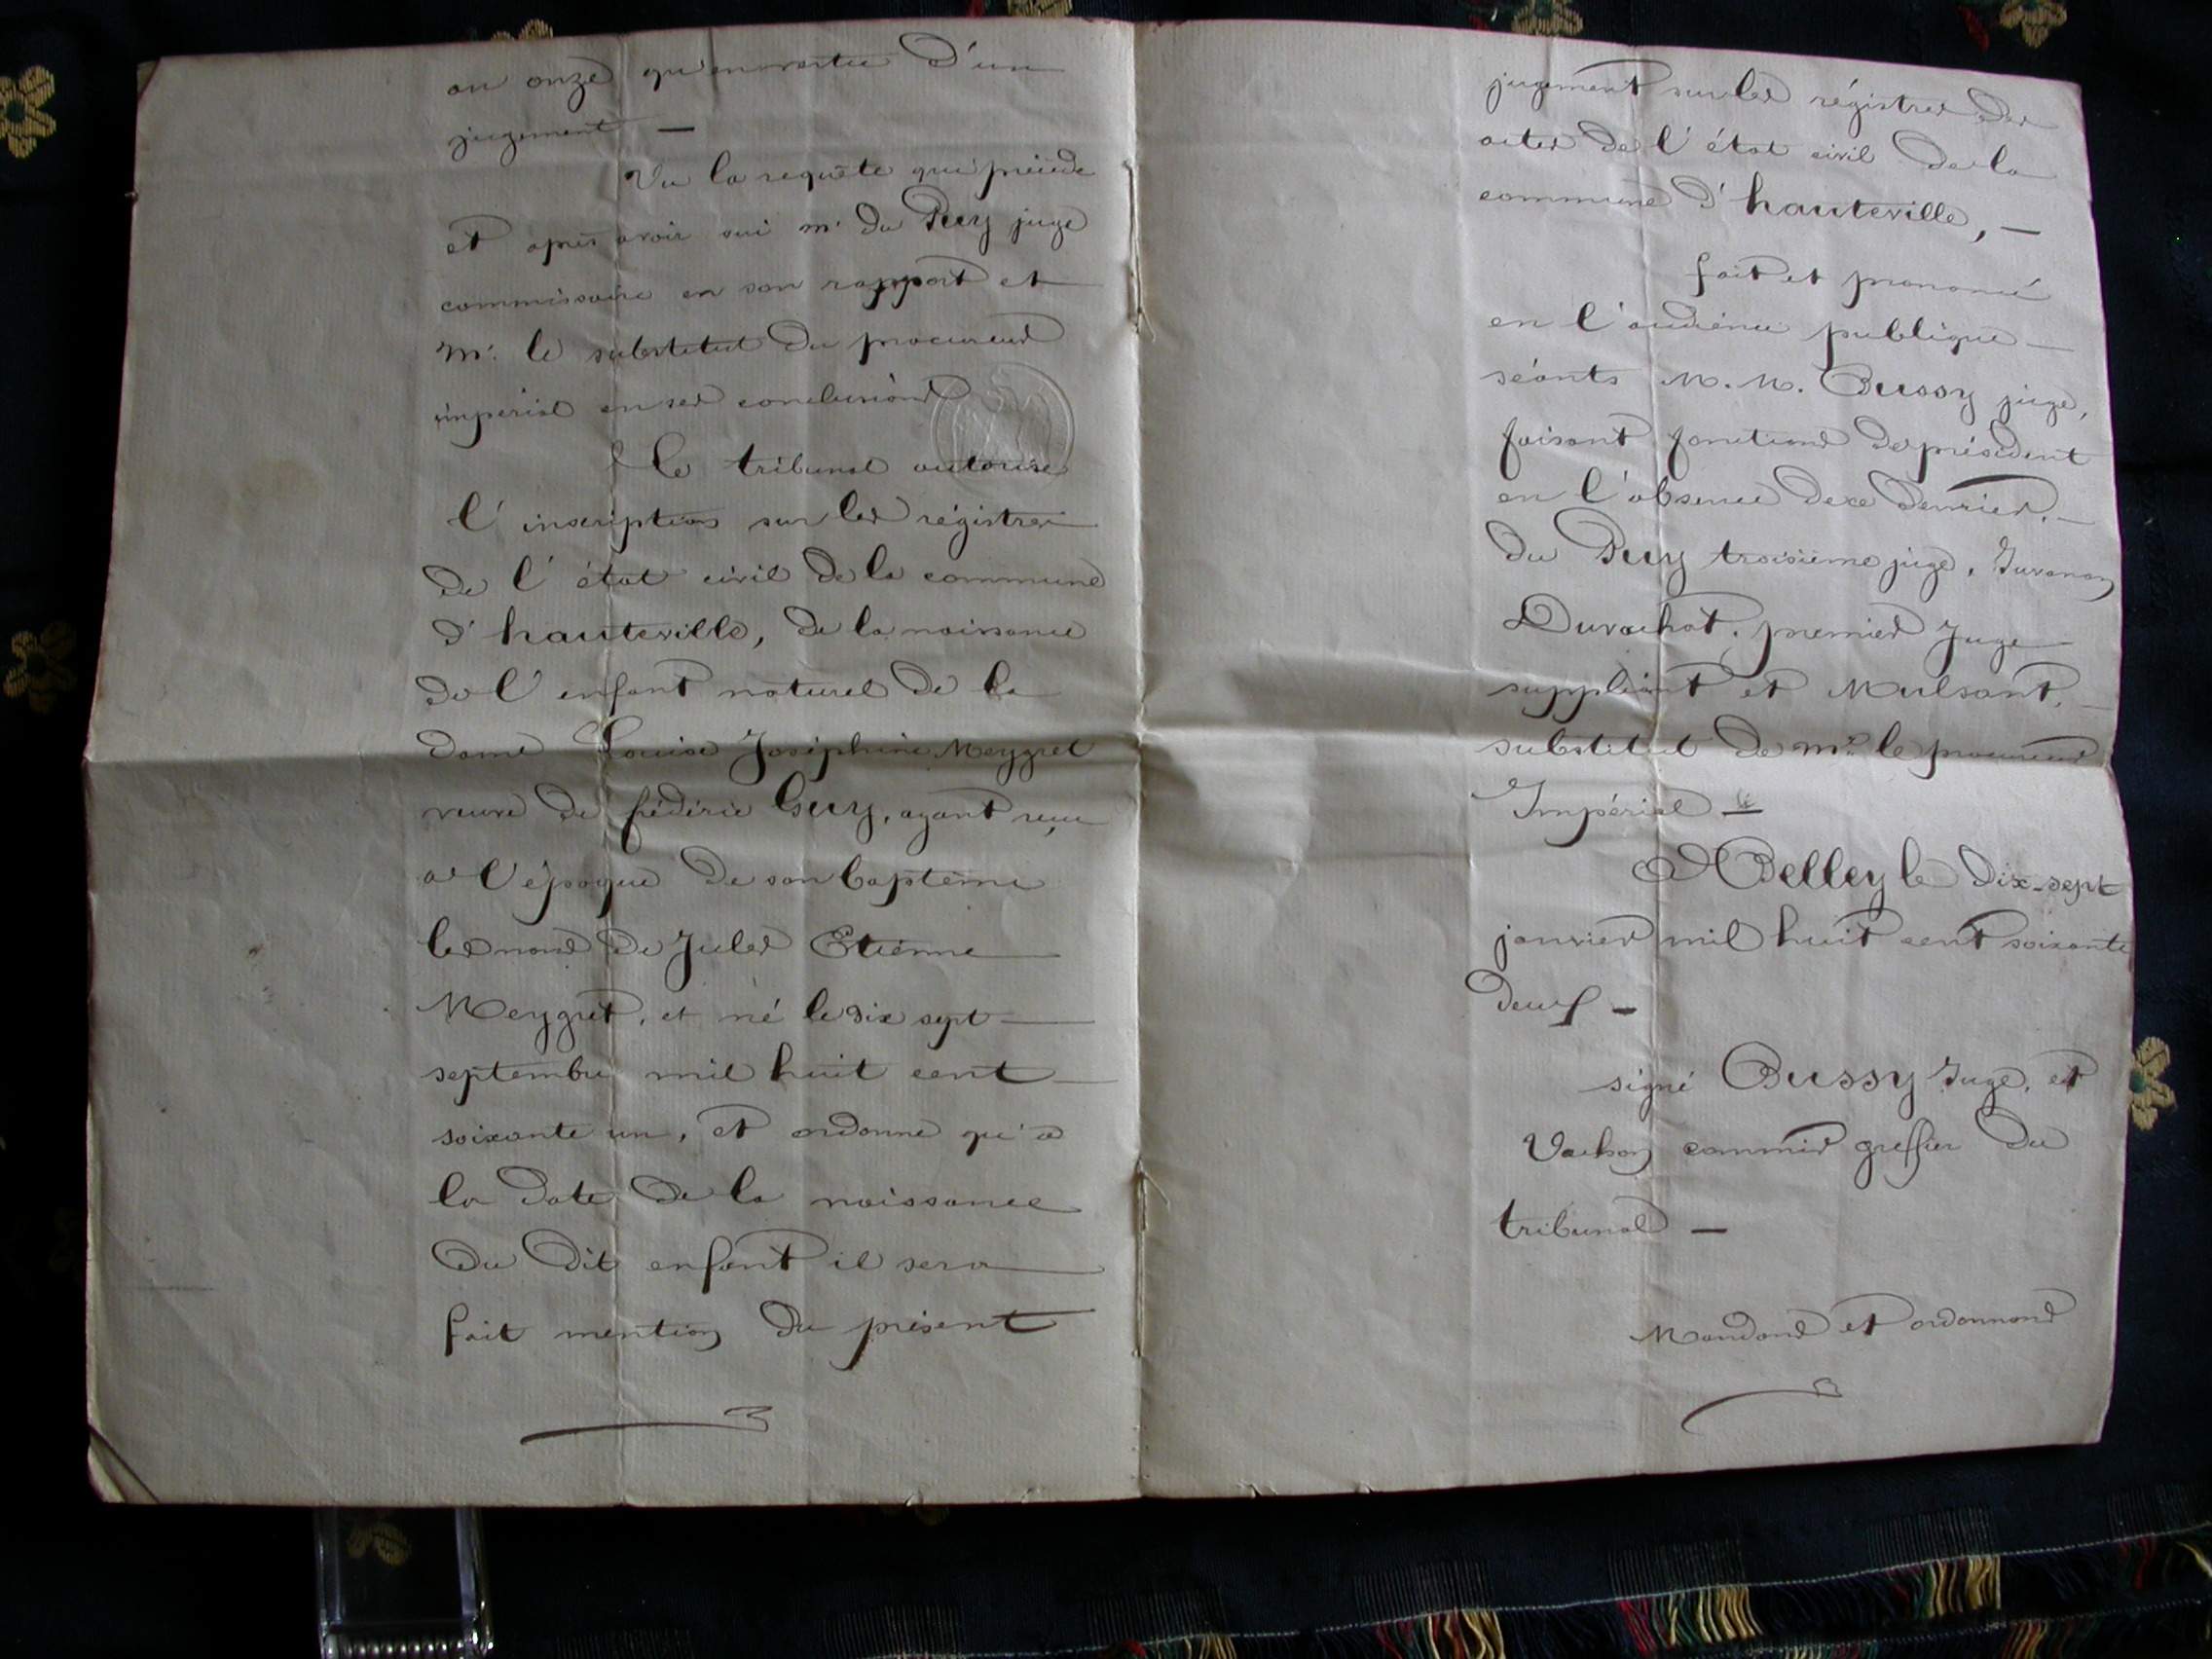 an onze qu'en vertu d'un
jugement —
Vu la requête qui précède
et après avoir oui mr. du Puy juge
commissaire en son rapport et
mr. le substitut du procureur
impérial en ses conclusions
Le tribunal autorise
l'inscription sur les régistres
de l'état civil de la commune
d'hauteville, de la naissance
de l'enfant naturel de la
dame Louise Joséphine Meygret
veuve de frédéric Guy, ayant reçu
à l'époque de son baptême
les noms de Jules Etienne
Meygret, et né le dix sept
septembre mil huit cent
soixante un, et ordonne qu'à
la date de la naissance
du dit enfant il sera
fait mention du présent
jugement sur les régistres des
actes de l'état civil de la
commune d'hauteville, —
fait et prononcé
en l'audience publique —
séants M. M. Bussy juge,
faisant fonctions de président
en l'absence de ce dernier. —
du Puy troisième juge, Juvanon
Duvachat, premier Juge
suppléant et Mulsant,
substitut de mr. le procureur
Impérial —
A Belley le dix-sept
janvier mil huit cent soixante
deux —
signé Bussy Juge, et
Vachon commis greffier du
tribunal —
Mandons et ordonnons